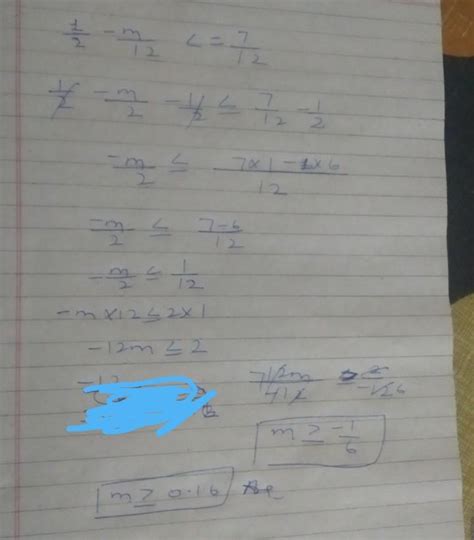 1/2 - m/12 <= 7/12
1/2 - m/2 - 1/2 ≤ 7/12 - 1/2
-m/2 ≤ 7×1 - 1×6/12
-m/2 ≤ 7-6/12
-m/2 ≤ 1/12
-m×12 ≤ 2×1
-12m ≤ 2
m ≥ -1/6
m ≥ 0.16